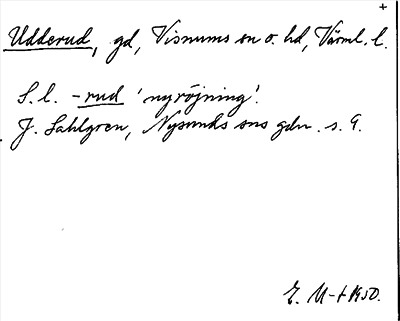 +
Udderud, gd, Visnums sn o. hd, Värml. l.
S. l. -rud 'nyröjning'.
J. Sahlgren, Nysunds sns gdn. s. 9.
E. U-t 1950.